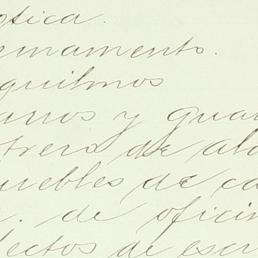 ptica.
rmamento.
quilmos
anos y guar
trero de al
uebles de ca
. de oficin
fectos de escr